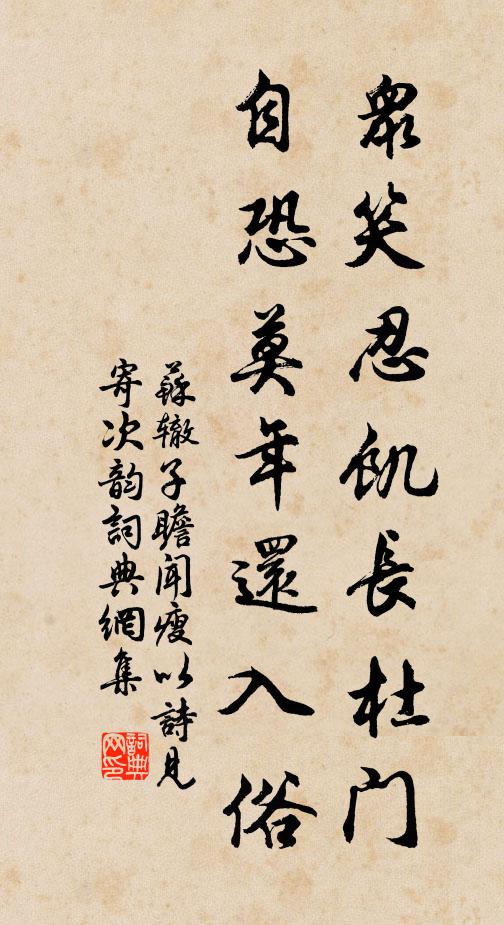 眾笑忍飢長杜门
自恐莫年還入俗
蘇辙子瞻聞瘦以詩見
寄次韵詞典網集
詞典
网印